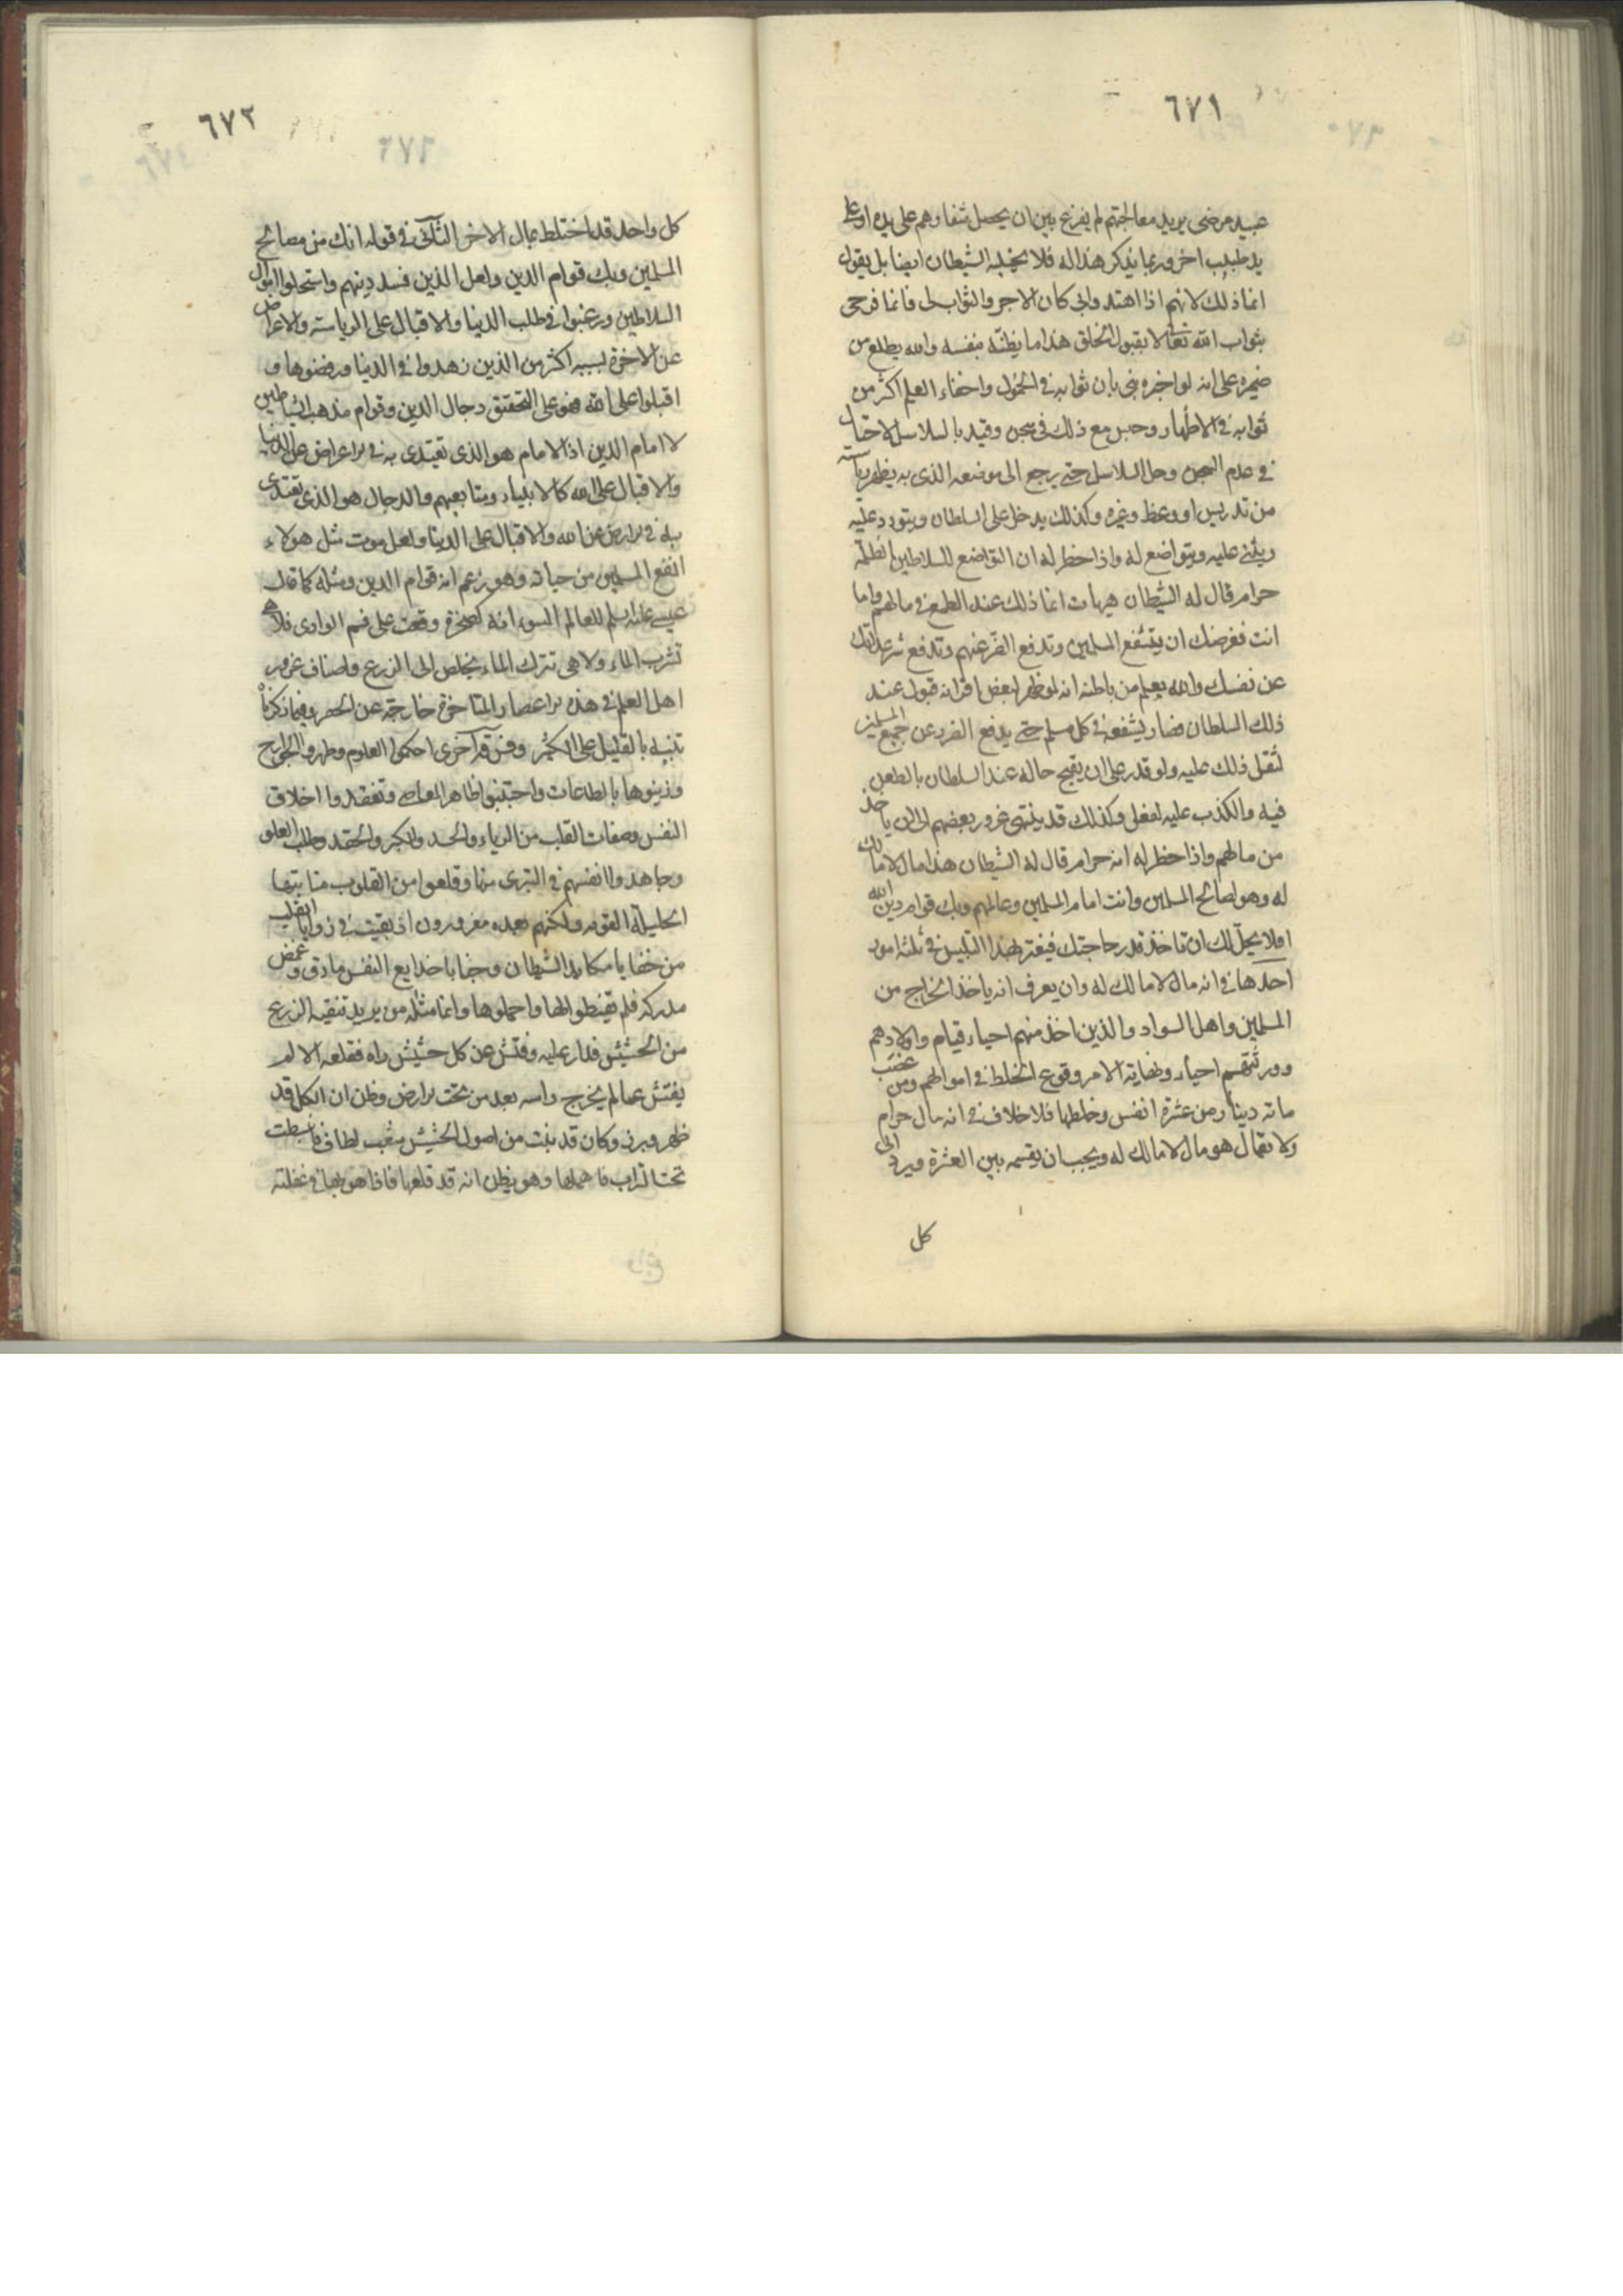 ٦٧١
عبيد مرضى يريد معالجتهم لم يفرع بين ان يحصل شفاوهم على يده او على
يد طبيب اخر وربما يذكر هذا له فلا يخليه الشيطان ايضا بل يقول
انما ذلك لانهم اذا اهتدوا بي كان الاجر والثواب لي فانما فرحي
بثواب الله تعالى لا بقبول الخلق هذا ما يظنه بنفسه والله يطلع من
ضميره على انه لو اخبره نبي بان ثوابه في الخمول واخفاء العلم اكثر من
ثوابه في الاظهار وحبس مع ذلك في سجن وقيد بالسلاسل لاحتال
في هدم السجن وحل السلاسل حتى يرجع الى موضعه الذي به يظهر رياسته
من تدريس او وعظ وغيره وكذلك يدخل على السلطان ويتودد عليه
ويثني عليه ويتواضع له واذا خطر له ان التواضع للسلاطين الظلمة
حرام قال له الشيطان هيهات انما ذلك عند الطمع في مالهم واما
انت فغرضك ان يتشفع المسلمين وتدفع الضرر عنهم وتدفع شر اعدائك
عن نفسك والله يعلم من باطنه انه لو ظهر لبعض اقرانه قبول عند
ذلك السلطان فصار يشفعه في كل مسلم حتى يدفع الضرر عن جميع المسلمين
لثقل ذلك عليه ولو قدر على ان يقبح حاله عند السلطان بالطعن
فيه والكذب عليه لفعل وكذلك قد ينتهي غرور بعضهم الى ان ياخذ
من مالهم واذا خطر له انه حرام قال له الشيطان هذا مال لا مالك
له وهو لصالح المسلمين وانت امام المسلمين وعالمهم وبك قوام دين الله
افلا يحل لك ان تاخذ قدر حاجتك فيغتر بهذا التلبيس في ثلثة امور
احدها في انه مال لا مالك له وان يعرف انه ياخذ الخراج من
المسلمين واهل السواد والذين اخذ منهم احياء قيام واولادهم
وورثتهم احياء وبغاية الامر وقوع الخلط في اموالهم ومن غصب
مائة دينار من عشرة انفس وخلطها فلا خلاف في انه مال حرام
ولا يقال هو مال لا مالك له ويجب ان يقسمه بين العشرة ويرد الى
كل
٦٧٢
كل واحد قد اختلط بمال الاخر الثاني في قوله انك من مصالح
المسلمين وبك قوام الدين ولعل الذين فسد دينهم واستحلوا اموال
السلاطين ورغبوا في طلب الدنيا والاقبال على الرياسة والاعراض
عن الاخرة بسببه اكثر من الذين زهدوا في الدنيا ورفضوها و
اقبلوا على الله فهو على التحقيق دجال الدين وقوام مذهب الشياطين
لا امام الدين اذ الامام هو الذي تقتدى به في الاعراض عن الدنيا
والاقبال على الله كالانبياء ومتابعيهم والدجال هو الذي تقتدى
به في الاعراض عن الله والاقبال على الدنيا ولعل موت مثل هولاء
انفع المسلمين من حياته وهو يزعم انه قوام الدين ومثله كما قال
عيسى عليه السلم للعالم السوء انه كصخرة وقعت على فم الوادي فلا هي
تشرب الماء ولا هي تترك الماء يخلص الى الزرع واصناف غرور
اهل العلم في هذه الاعصار المتاخرة خارجة عن الحصر وفيما ذكرناه
تنبيه بالقليل على الكثير وفرقة اخرى احكموا العلوم وطهروا الجوارح
وزينوها بالطاعات واجتنبوا ظاهر المعاصي وتفقدوا اخلاق
النفس وصفات القلب من الرياء والحسد والكبر والحقد وطلب العلو
وجاهدوا انفسهم في التبري منها وقلعوا من القلوب منابتها
الجليلة القوية ولكنهم بعده مغرورون اذ بقيت في زوايا القلب
من خفايا مكايد الشيطان وخبايا خدايع النفس ما دق وغمض
مدركه فلم يفطنوا لها واهملوها وانما مثله من يريد تنقية الزرع
من الحشيش فدار عليه وفتش عن كل حشيش راه فقلعه الا لم
يفتش عما لم يخرج راسه بعد من تحت الارض وظن ان الكل قد
ظهر وبرز وكان قد نبت من اصول الحشيش شعب لطاف فانبسطت
تحت التراب فاهملها وهو يظن انه قد قلعها فاذا هو بها في غفلته